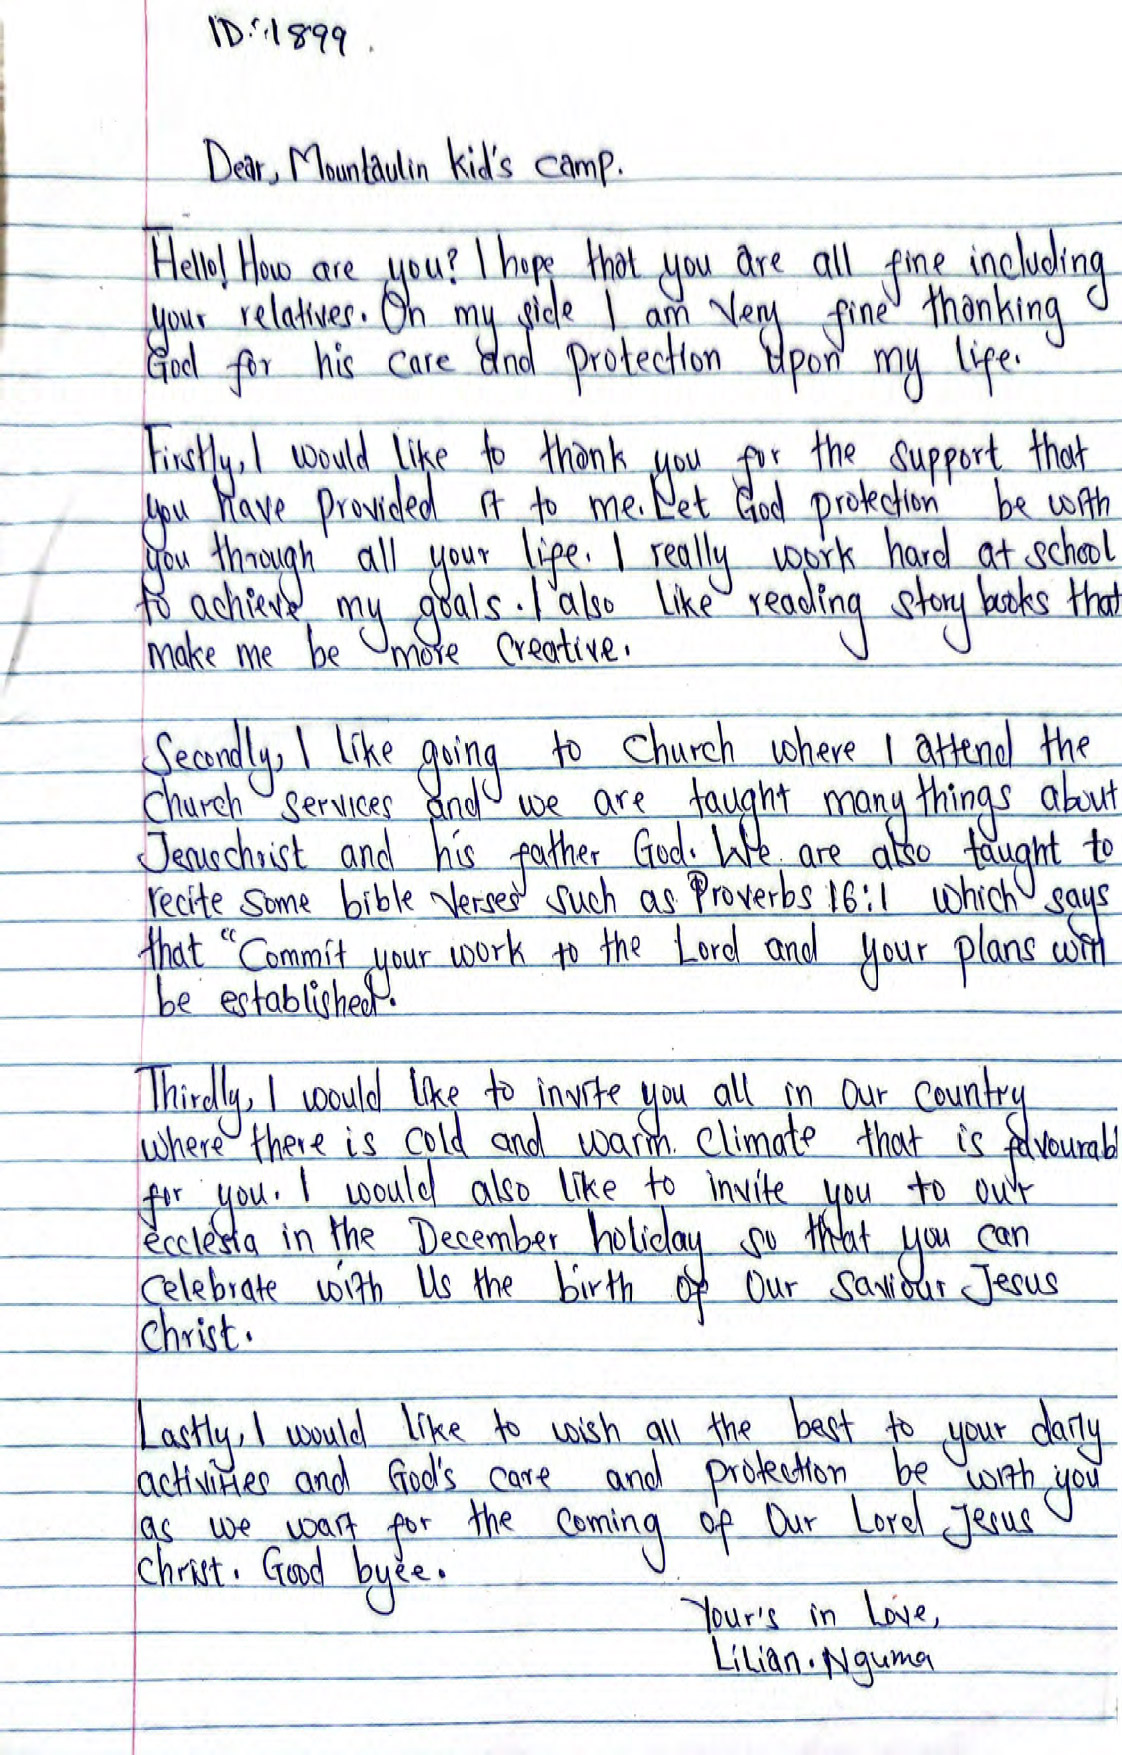 ID:1899.
Dear, Mountaulin kid's camp.
Hello! How are you? I hope that you are all fine including
your relatives. On my side I am very fine thanking
God for his care and protection upon my life.
Firstly, I would like to thank you for the support that
you have provided it to me. Let God protection be with
you through all your life. I really work hard at school
to achieve my goals. I also like reading story books that
make me be more creative.
Secondly, I like going to church where I attend the
church services and we are taught many things about
Jesuschrist and his father God. We are also taught to
recite some bible verses such as Proverbs 16:1 which says
that "Commit your work to the Lord and your plans will
be established.
Thirdly, I would like to invite you all in our country
where there is cold and warm climate that is favourabl
for you. I would also like to invite you to our
ecclesia in the December holiday so that you can
celebrate with us the birth of our saviour Jesus
christ.
Lastly, I would like to wish all the best to your daily
activities and God's care and protection be with you
as we wait for the coming of our Lord Jesus
christ. Good byee.
Your's in Love,
Lilian. Nguma